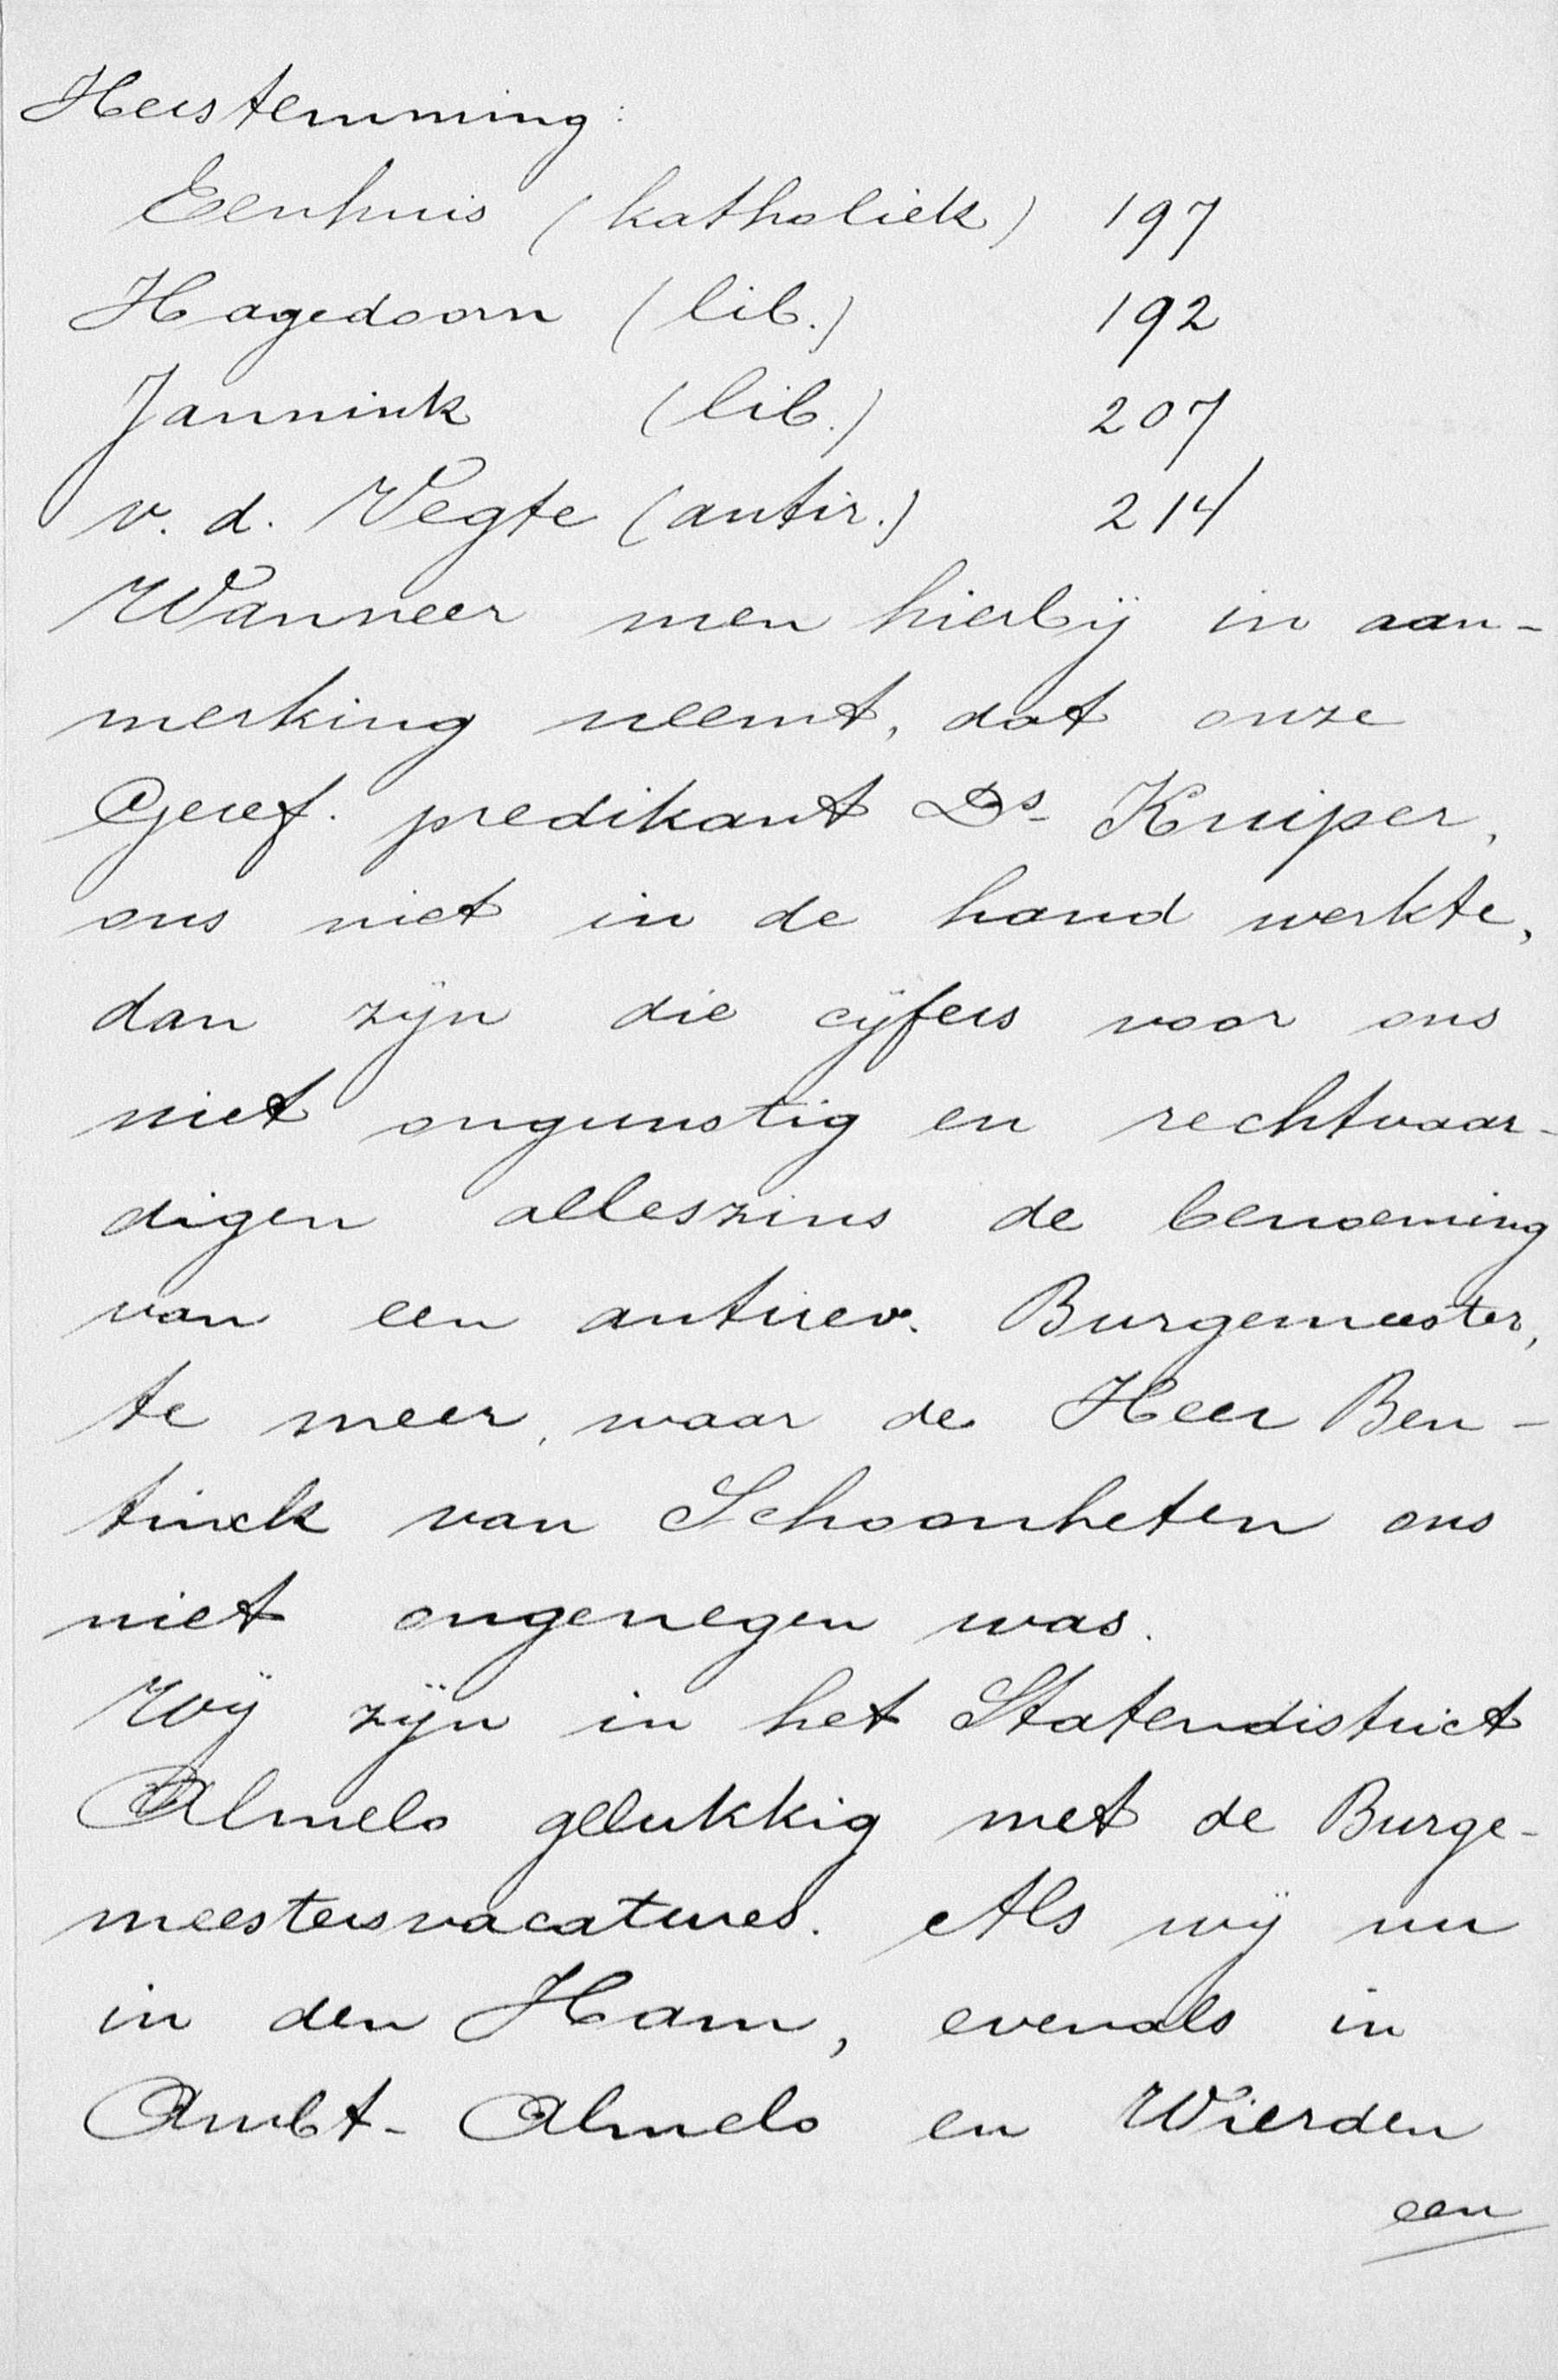 Herstemming:
Eenhuis (katholiek) 197
Hagedoorn (lib.) 192
Jannink (lib.) 207
v. d. Vegte (antir.) 214
Wanneer men hierbij in aan-
merking neemt, dat onze
Geref. predikant Ds Kuiper,
ons niet in de hand werkte,
dan zijn die cijfers voor ons
niet ongunstig en rechtvaar-
digen alleszins de benoeming
van een antirev. Burgemeester,
te meer, waar de Heer Ben-
tinck van Schoonheten ons
niet ongenegen was.
Wij zijn in het Statendistrict
Almelo gelukkig met de Burge-
meestersvacatures. Als wij nu
in den Ham, evenals in
Ambt-Almelo en Wierden
een